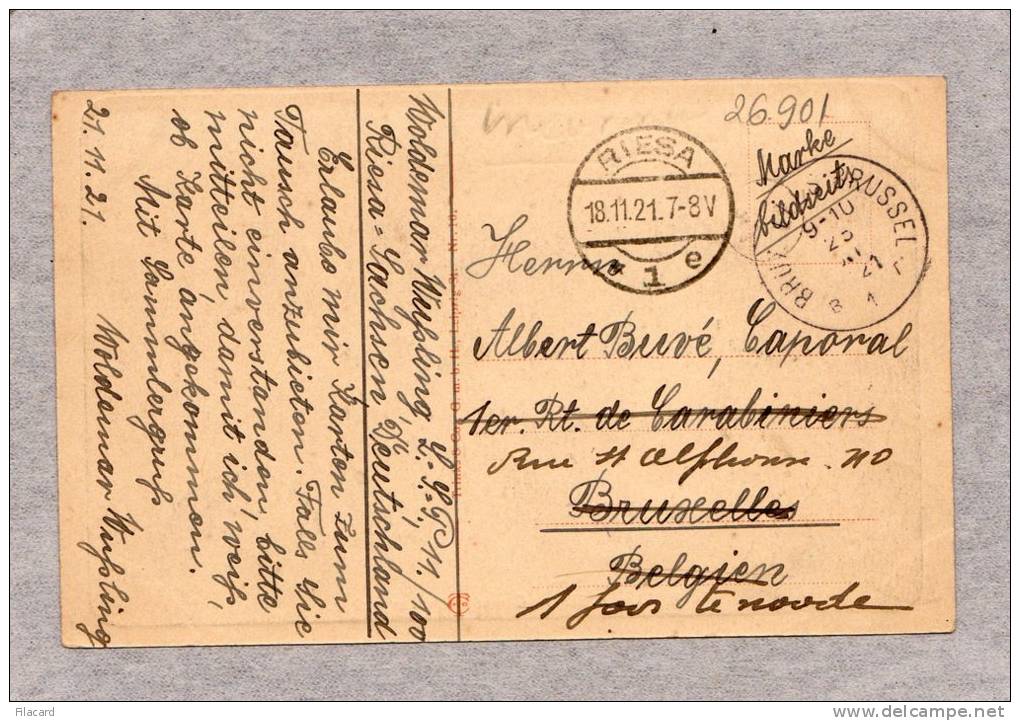 26.901
Marke
bildseits
RIESA
18.11.21.7-8V
* 1 e
BRUSSEL
9-10
21
1
Herrn
Albert Buvé, Caporal
1er. Rt. de Carabiniers
Rue St Alphonse. 40
Bruxelles
Belgien
St Joos te noode
Woldemar Wußling, L.=S.P.11./100
Riesa=Sachsen, Deutschland
Erlaube mir Karten zum
Tausch anzubieten. Falls Sie
nicht einverstanden, bitte
mitteilen damit ich weiß,
ob Karte angekommen.
Mit Sammlergruß
Woldemar Wußling
21.11.21.
Filacard
delcampe.net